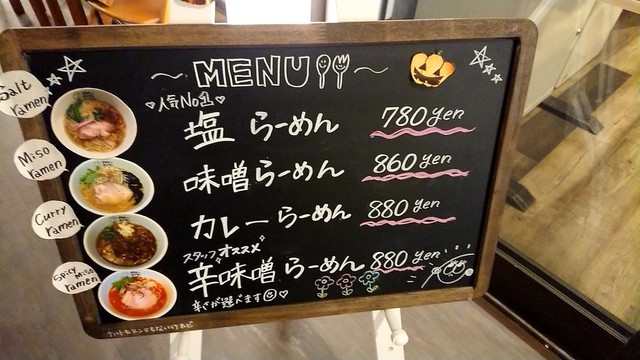 MENU
♡人気No.1♡
Salt ramen
塩 らーめん 780 yen
Miso ramen
味噌らーめん 860 yen
Curry ramen
カレーらーめん 880 yen
スタッフオススメ
Spicy Miso ramen
辛味噌らーめん 880 yen
辛さが選べます☺♡